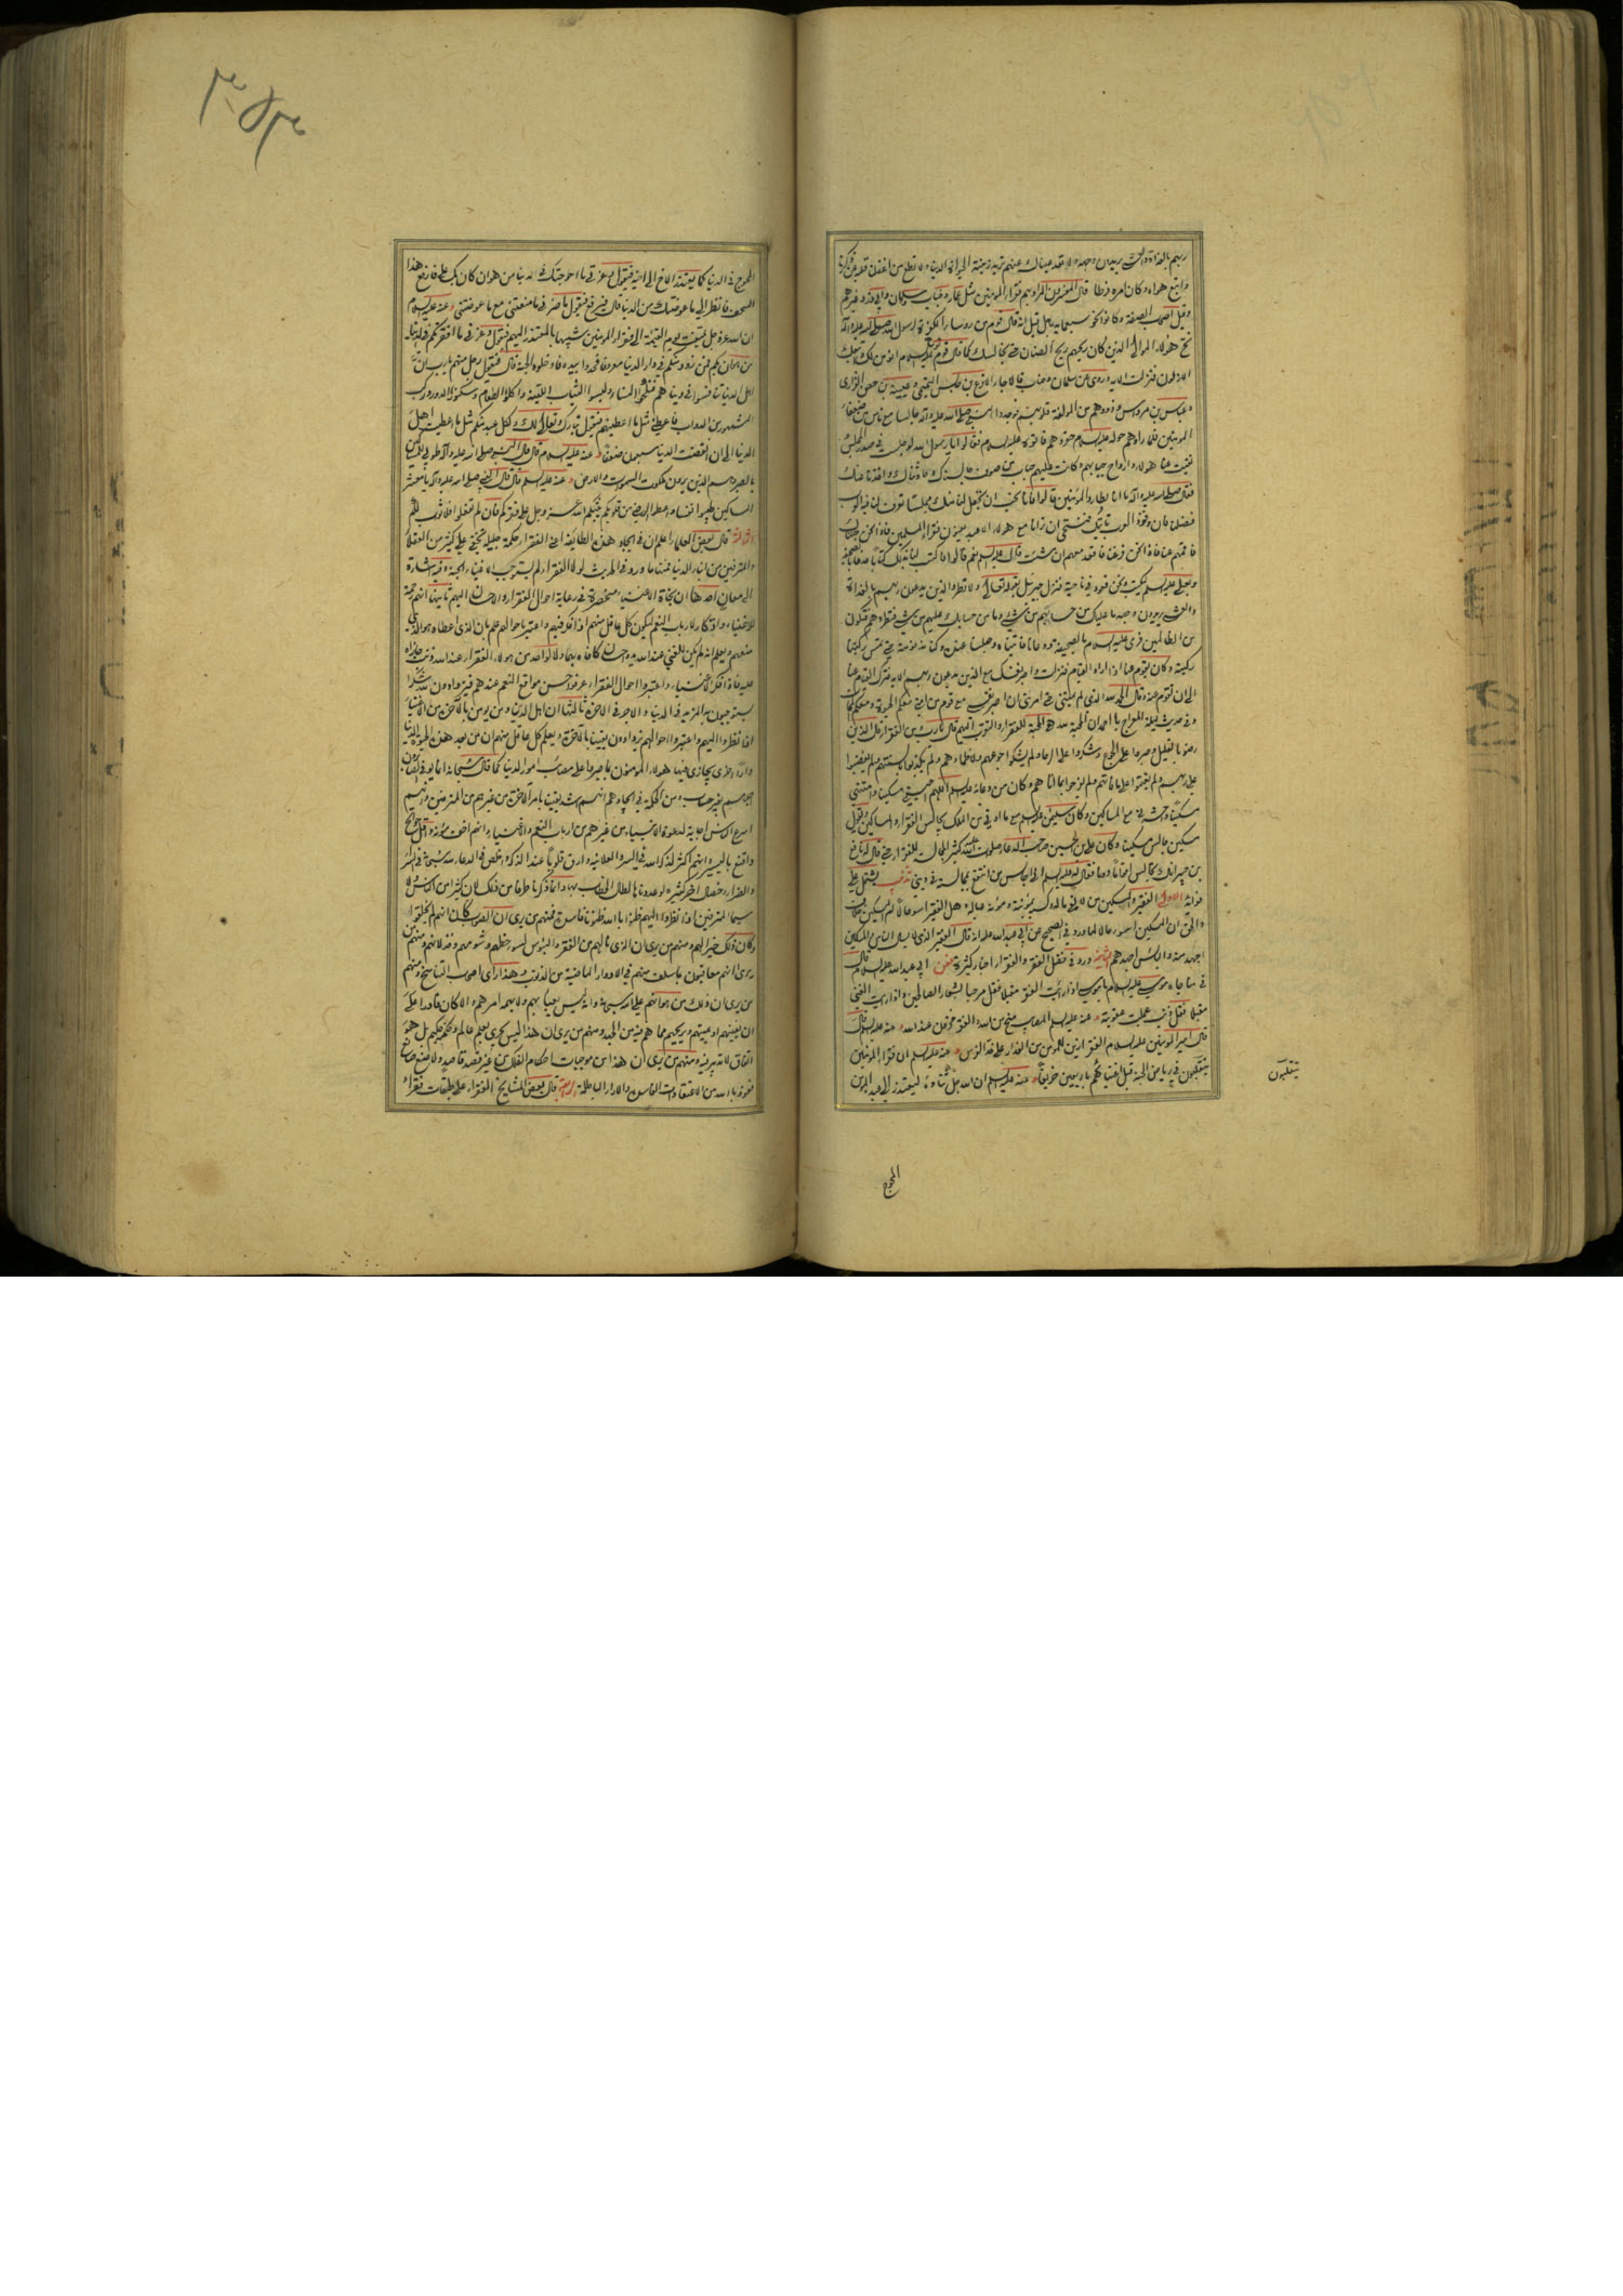 ربهم بالغداة والعشي يريدون وجهه ولا تعد عيناك عنهم تريد زينة الحياة الدنيا ولا تطع من اغفلنا قلبه عن ذكرنا
واتبع هواه وكان امره فرطا قال المفسرون المراد بهم فقراء المؤمنين مثل عمار وخباب وسلمان وابي ذر وغيرهم
وقيل اصحاب الصفة وكانوا نحو سبعماية رجل قيل انه قال قوم من روساء الكفرة لرسول الله صلى الله عليه وآله
نح هؤلاء الموالي الذين كان ريحهم ريح الصنان حتى نجالسك كما قال قوم نوح عليه السلام انؤمن لك واتبعك
الارذلون فنزلت الآية وروى عن سلمان وخباب قالا جاء الاقرع بن حابس التميمي وعيينة بن حصن الفزاري
وعباس بن مرداس وذووهم من المولفة قلوبهم فوجدوا النبي صلى الله عليه وآله جالسا مع ناس من ضعفاء
المؤمنين فلما راوهم حوله عليه السلام حقروهم فاتوه عليه السلام فقالوا يا رسول الله لو جلست في صدر المجلس
ونفيت عنا هؤلاء وارواح جبابهم وكانت عليهم جباب من صوف جالسناك وحادثناك واخذنا عنك
فقال صلى الله عليه وآله ما انا بطارد المؤمنين قالوا فانا نحب ان تجعل لنا منك مجلسا تعرف لنا به العرب
فضلنا فان وفود العرب تاتيك فنستحي ان ترانا مع هؤلاء الاعبد فاذا نحن جئناك
فاقمهم عنا فاذا نحن فرغنا فاقعد معهم ان شئت قال عليه السلام نعم قالوا فاكتب لنا بذلك كتابا فدعا بالصحيفة
وبعلي عليه السلم ليكتب ونحن قعود في ناحية فنزل جبرئيل بقوله تعالى ولا تطرد الذين يدعون ربهم بالغداة
والعشي يريدون وجهه ما عليك من حسابهم من شيء وما من حسابك عليهم من شيء فتطردهم فتكون
من الظالمين فرمى عليه السلام بالصحيفة ودعانا فاتيناه وجلسنا عنده وكنا ندنو منه حتى تمس ركبتنا
ركبته وكان يقوم عنا اذا اراد القيام فنزلت واصبر نفسك مع الذين يدعون ربهم الآية فترك القيام عنا
الى ان نقوم عنه وقال الحمد لله الذي لم يمتني حتى امرني ان اصبر نفسي مع قوم من امتي معكم المحيا ومعكم الممات
وفي حديث ليلة المعراج يا احمد ان المحبة لله هي المحبة للفقراء والتقرب اليهم قال يا رب من الفقراء قال الذين
رضوا بالقليل وصبروا على الجوع وشكروا على الرخاء ولم يشكوا جوعهم ولا ظماءهم ولم يكذبوا بالسنتهم ولم يغضبوا
على ربهم ولم يغتموا على ما فاتهم ولم يفرحوا بما اتاهم وكان من دعائه عليه السلم اللهم احيني مسكينا وامتني
مسكينا واحشرني مع المساكين وكان سليمان عليه السلم مع ما اوتي من الملك يجالس الفقراء والمساكين ويقول
مسكين جالس مسكينا وكان علي بن الحسين صاحب الدعاء صلوات الله عليه كثير المجالسة للفقراء حتى قال له نافع
بن جبير انك تجالس اقواما دونا فقال له عليه السلم اني اجالس من انتفع بمجالسته في ديني تذنيب يشتمل على
فوائد الاولى الفقير والمسكين من لا يفي ماله بمؤنته ومؤنة عياله وهل الفقير اسوء حالا ام المسكين خلاف
والحق ان المسكين اسوء حالا لما ورد في الصحيح عن ابي عبد الله عليه السلام انه قال الفقير الذي لا يسال الناس والمسكين
اجهد منه والبائس اجهدهم الثانية ورد في فضل الفقر والفقراء اخبار كثيرة فعن ابي عبد الله عليه السلام قال
في مناجاة موسى عليه السلام يا موسى اذا رايت الفقر مقبلا فقل مرحبا بشعار الصالحين واذا رايت الغنى
مقبلا فقل ذنب عجلت عقوبته وعنه عليه السلم المصايب منح من الله والفقر مخزون عند الله وعنه عليه السلم قال
قال امير المؤمنين عليه السلام الفقر ازين للمؤمن من العذار على خد الفرس وعنه عليه السلم ان فقراء المؤمنين
يتقلبون في رياض الجنة قبل اغنيائهم باربعين خريفا وعنه عليه السلم ان الله جل ثناؤه ليعتذر الى عبده المؤمن
يتقلبون
المحوج
المحوج في الدنيا كما يعتذر الاخ الى اخيه فيقول وعزتي ما احوجتك في الدنيا من هوان كان بك علي فارفع هذا
السجف فانظر الى ما عوضتك من الدنيا قال فيرفع فيقول ما ضرني ما منعتني مع ما عوضتني وعنه عليه السلام
ان الله عز وجل يلتفت يوم القيمة الى فقراء المؤمنين شبيها بالمعتذر اليهم فيقول وعزتي ما افقرتكم في الدنيا
من هوان بكم فمن زود منكم في دار الدنيا معروفا فخذوا بيده فادخلوه الجنة قال فيقول رجل منهم يا رب ان
اهل الدنيا تنافسوا في دنياهم فنكحوا النساء ولبسوا الثياب اللينة واكلوا الطعام وسكنوا الدور وركبوا
المشهور من الدواب فاعطني مثل ما اعطيتهم فيقول تبارك وتعالى لك ولكل عبد منكم مثل ما اعطيت اهل
الدنيا الى ان انقضت الدنيا سبعون ضعفا وعنه عليه السلام قال قال النبي صلى الله عليه وآله طوبى للمساكين
بالصبر وهم الذين يرون ملكوت السموات والارض وعنه عليه السلم قال قال النبي صلى الله عليه وآله يا معشر
المساكين طيبوا نفسا واعطوا الله الرضى من قلوبكم يثبكم الله عز وجل على فقركم فان لم تفعلوا فلا ثواب لكم
الثالثة قال بعض العلماء اعلم ان في ايجاد هذه الطائفة اعني الفقراء حكمة جليلة تخفى على كثير من العقلاء
والمترفين من ابناء الدنيا فمنها ما ورد في الحديث لولا الفقراء لم يستوجب الاغنياء الجنة وفيه اشارة
الى معان احدها ان نجاة الاغنياء منحصرة في رعاية احوال الفقراء والاحسان اليهم ثانيها انهم حجة
للاغنياء وتذكار لارباب النعم ليكون كل عاقل منهم اذا فكر فيهم واعتبر باحوالهم علم بان الذي اعطاه هو الذي
منعهم ويعلم انه لم يكن للغني عند الله يد واحسان كافاه بهما ولا لواحد من هؤلاء الفقراء عند الله ذنب جازاه
عليه فاذا فكر الاغنياء واعتبروا احوال الفقراء عرفوا حسن مواقع النعم عندهم فيزدادون لله شكرا
يستوجبون به المزيد في الدنيا والاجر في الاخرة ثالثها ان اهل الدين ومن يومن بالآخرة من الاغنياء
اذا نظروا اليهم واعتبروا احوالهم يزدادون يقينا بالآخرة ويعلم كل عاقل منهم ان من بعد هذه الحيوة الدنيا
دارا اخرى يجازى فيها هؤلاء المؤمنون بما صبروا على مصائب امور الدنيا كما قال سبحانه انما يوفى الصابرون
اجرهم بغير حساب ومن الحكمة في ايجادهم انهم اشد يقينا بامر الآخرة من غيرهم من المترفين وانهم
اسرع الناس اجابة لدعوة الانبياء من غيرهم من ارباب النعم والاغنياء وانهم اخف مؤنة واقل حوائج
واقنع باليسير وانهم اكثر لذكر الله في السر والعلانية وارق قلوبا عند الذكر واخلص في الدعاء لله سبحانه في السراء
والضراء وخصال اخر كثيرة لو عددناها لطال الخطاب بها وانما ذكرنا طرفا من ذلك لان كثيرا من الناس لا
سيما المترفين اذا نظروا اليهم ظنوا بالله ظنونا فاسدة فمنهم من يرى ان الصواب كان انهم لم يخلقوا
وكان ذلك خيرا لهم ومنهم من يرى ان الذي نالهم من الفقر والبؤس لسوء حظهم وشومهم وخذلانهم ومنهم من
يرى انهم معاقبون بما سلف منهم في الادوار الماضية من الذنوب وهذا راي اصحاب التناسخ ومنهم
من يرى ان ذلك من هوانهم على الله سبحانه وانه ليس يعبأ بهم ولا يهمه امرهم والا كان قادرا على
ان يغنيهم او يميتهم ويريحهم مما هم فيه من الجهد ومنهم من يرى ان هذا ليس يجري بعلم عالم وحكم حكيم بل هو
اتفاق لا تدبير فيه ومنهم من يرى ان هذا من موجبات احكام الفلك من غير قصد قاصد ولا صنع صانع
نعوذ بالله من الاعتقادات الفاسدة والآراء الباطلة الرابعة قال بعض المشايخ الفقراء على طبقات فقراء